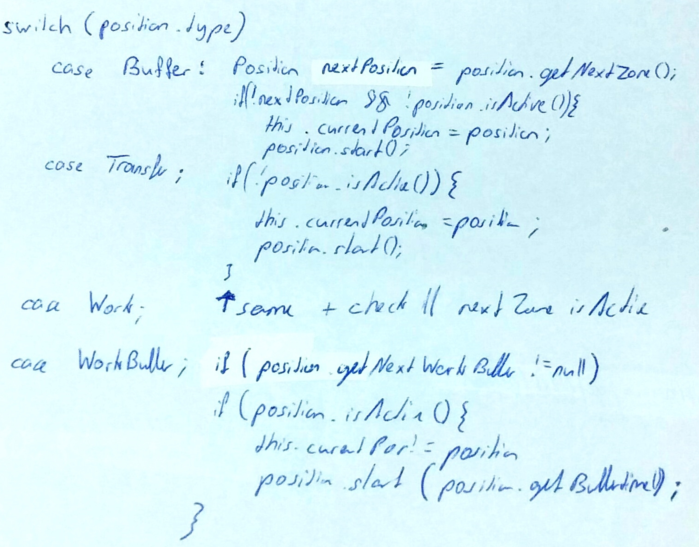 switch (position.type)
case Buffer: Position nextPosition = position.getNextZone();
if(!nextPosition && !position.isActive()){
this.currentPosition = position;
position.start();
case Transfer; if(!position.isActive()) {
this.currentPosition = position;
position.start();
}
case Work; ↑ same + check || next Zone isActive
case WorkBuffer; if (position.getNextWorkBuffer != null)
if (position.isActive() {
this.currentPos! = position
position.start (position.getBuffertime();
}